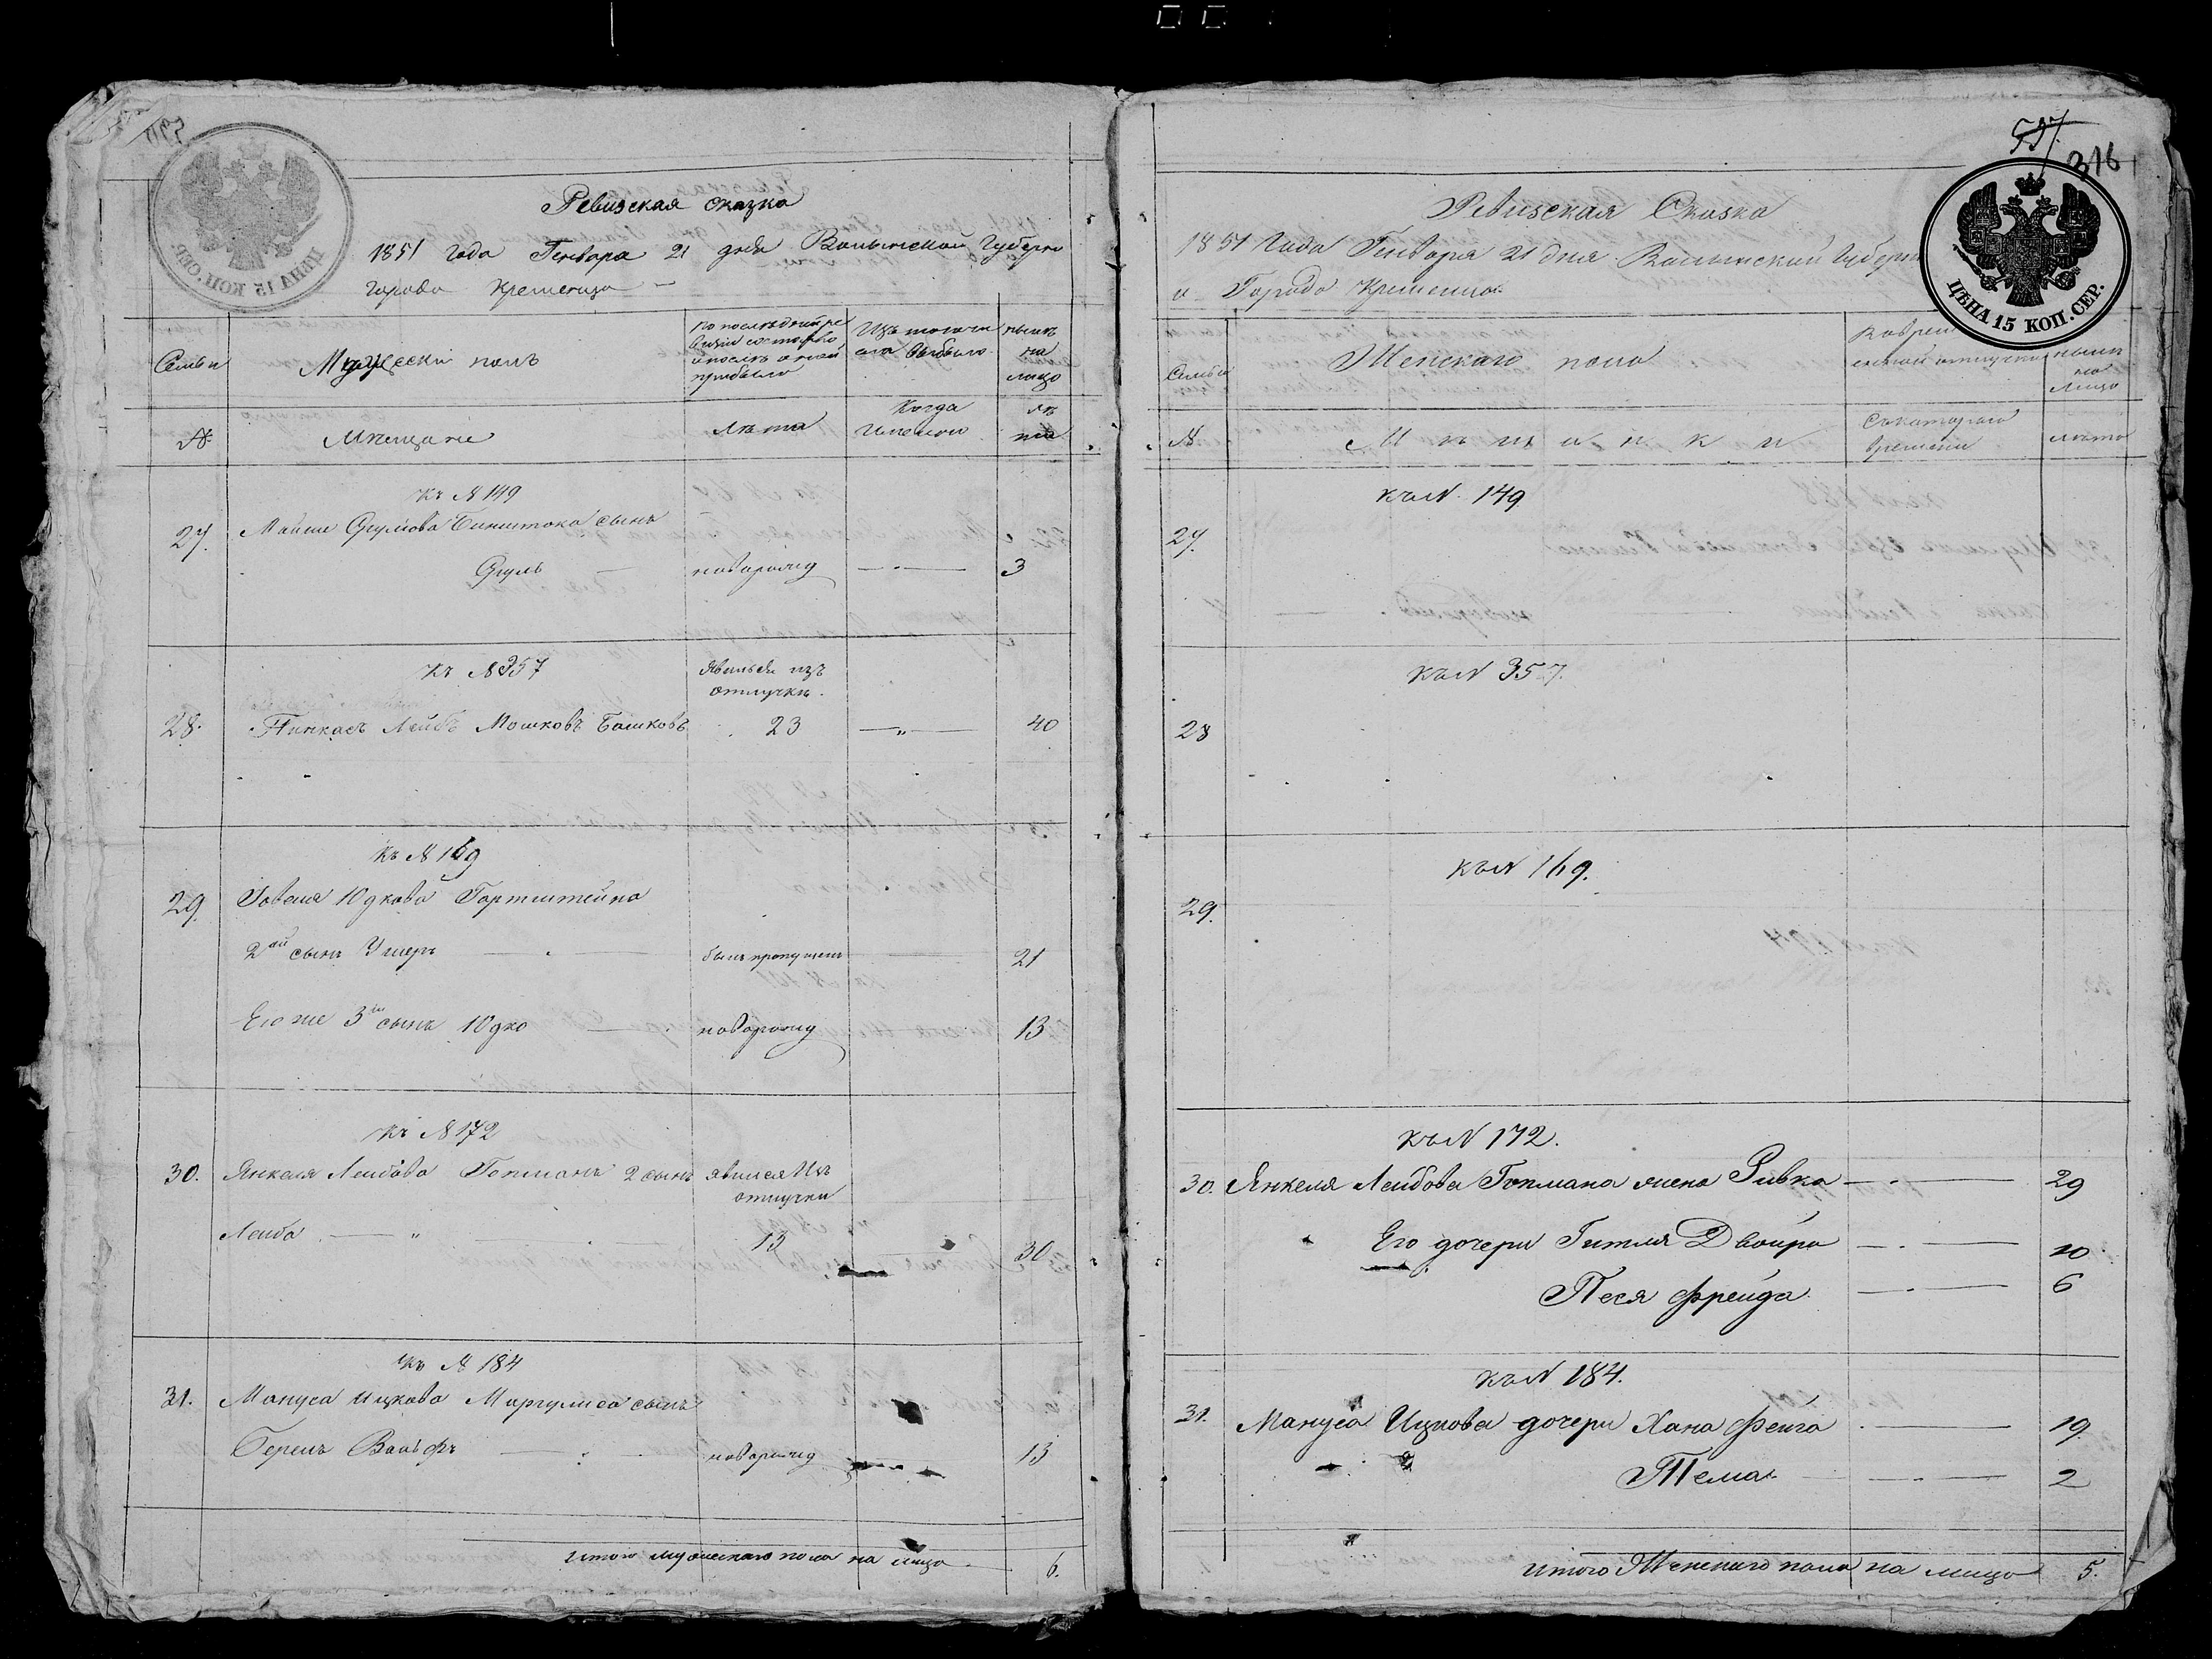 Ревизская сказка
1851 года Генваря 21 дня Волынской Губерни
города Кременца
Семьи
Мужески полъ
По последней ре
визии состояло
и после оной
прибыло
Изъ того чи
сла выбыло
ныне
на
лицо
№
Мещане
Лета
Когда
Именно
ле
та
Къ № 149
27. Мошке Срулiова Бинштока сынъ
Сруль новорожд 3
Къ № 357
Явился изъ
отлучки
28. Пинкасъ Лейбъ Мошковъ Башковъ 23 40
Къ № 169
29. Говеля Юдкова Гортштейна
2ой сынъ Ушеръ былъ пропущенъ 21
Его же 3й сынъ Юдко новорожд 13
Къ № 172
30. Янкеля Леибова Гопманъ 2 сынъ явился Изъ
отлучки
Леиба 13 30
Къ № 184
31. Мануса Ицкова Маргулиса сынъ
Берель Вольфъ новорожд 13
Итого мужескаго пола на лицо 6.
597.
316
ЦѢНА 15 КОП. СЕР.
Ревизская Сказка
1851 Года Генваря 21 дня Волынский Губерни
и Города Кременца
Семьи
Женскаго пола
Во врем
енной отлучки
ныне
на
Лицо
№
М е щ а н к и
Съ котораго
времени
лета
къ № 149
27.
къ № 357.
28
къ № 169.
29.
къ № 172.
30. Янкеля Леибова Гопмана жена Ривка 29
Его дочери Гитля Двойра 10
Песя Фрейда 6
къ № 184.
31. Мануса Ицкова дочери Хана Фейга 19
Тема 2
Итого Женскаго пола на лицо 5.